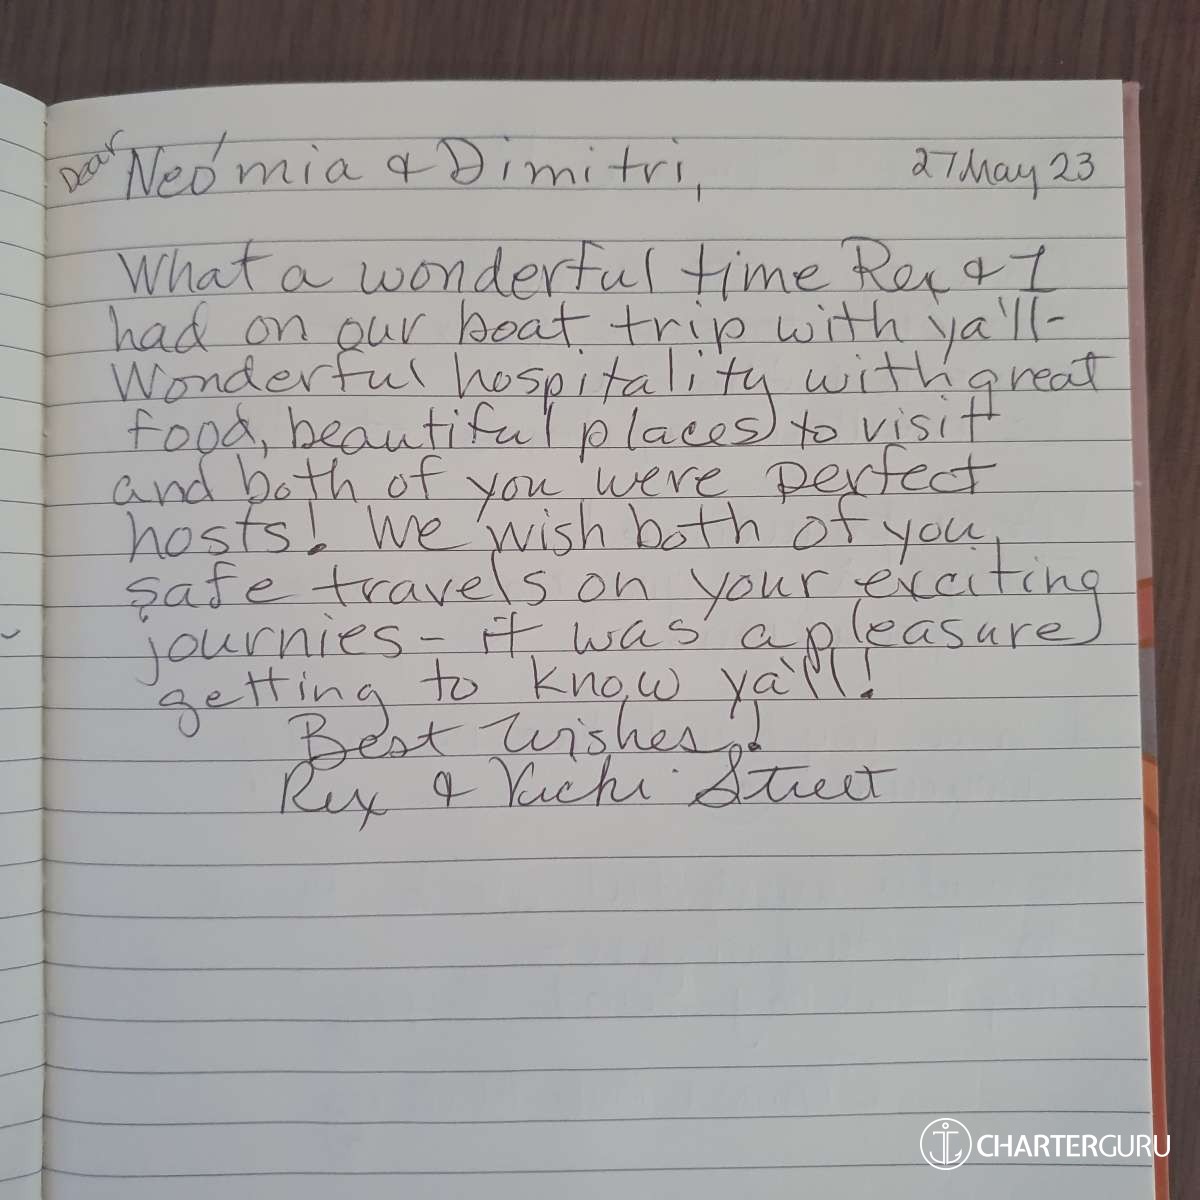 Dear Neómia & Dimitri, 27 May 23
What a wonderful time Rex & I
had on our boat trip with ya'll-
Wonderful hospitality with great
food, beautiful places to visit
and both of you were perfect
hosts! We wish both of you
safe travels on your exciting
journies - it was a pleasure
getting to know ya'll!
Best Wishes!
Rex & Street
CHARTERGURU